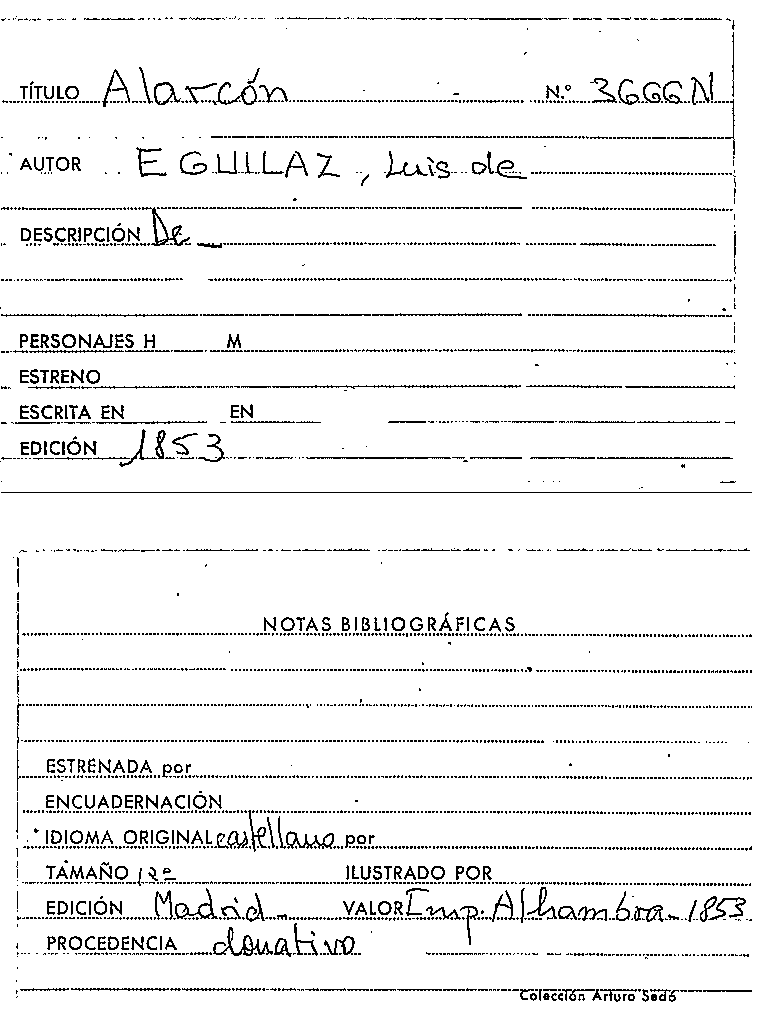 TÍTULO Alarcón N.º 3666N
AUTOR EGUILAZ, Luis de
DESCRIPCIÓN De
PERSONAJES H M
ESTRENO
ESCRITA EN EN
EDICIÓN 1853
NOTAS BIBLIOGRÁFICAS
ESTRENADA por
ENCUADERNACIÓN
IDIOMA ORIGINAL castellano por
TAMAÑO 12º ILUSTRADO POR
EDICIÓN Madrid - VALOR Imp. Alhambra - 1853
PROCEDENCIA donativo
Colección Arturo Sedó